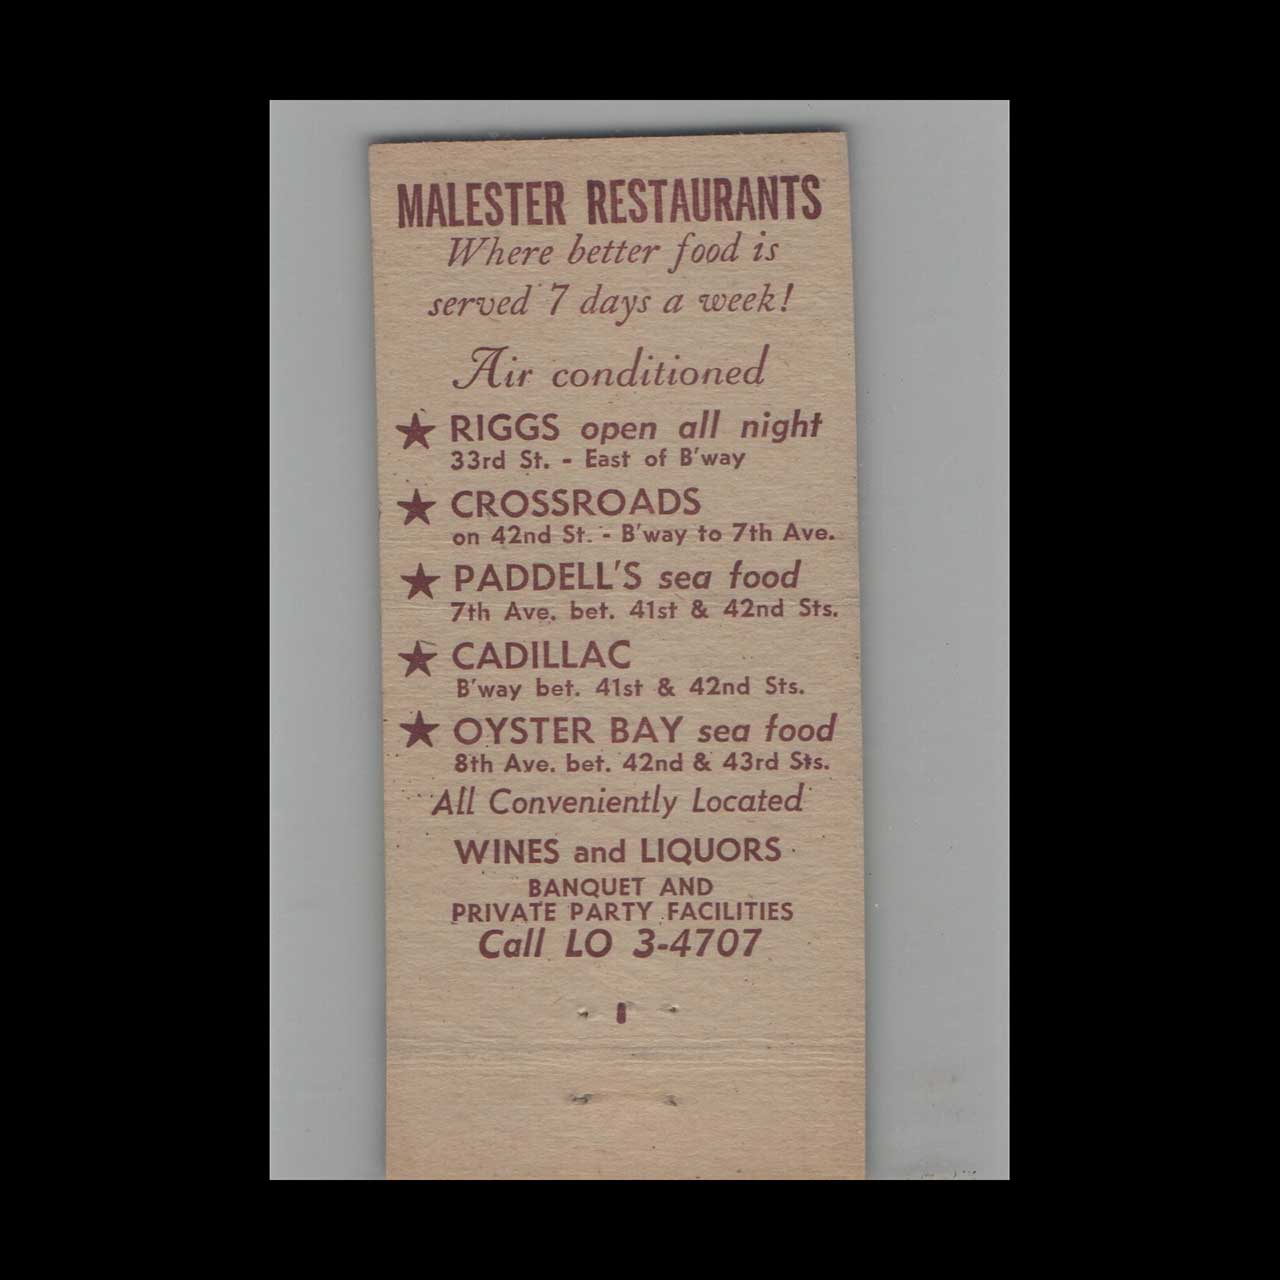 MALESTER RESTAURANTS
Where better food is
served 7 days a week!
Air conditioned
★ RIGGS open all night
33rd St. - East of B'way
★ CROSSROADS
on 42nd St. - B'way to 7th Ave.
★ PADDELL'S sea food
7th Ave. bet. 41st & 42nd Sts.
★ CADILLAC
B'way bet. 41st & 42nd Sts.
★ OYSTER BAY sea food
8th Ave. bet. 42nd & 43rd Sts.
All Conveniently Located
WINES and LIQUORS
BANQUET AND
PRIVATE PARTY FACILITIES
Call LO 3-4707